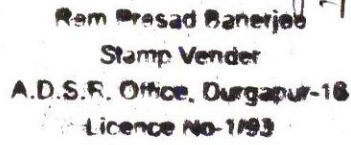 Ram Prasad Banerjee
Stamp Vender
A.D.S.R. Office, Durgapur-16
Licence No-1/93